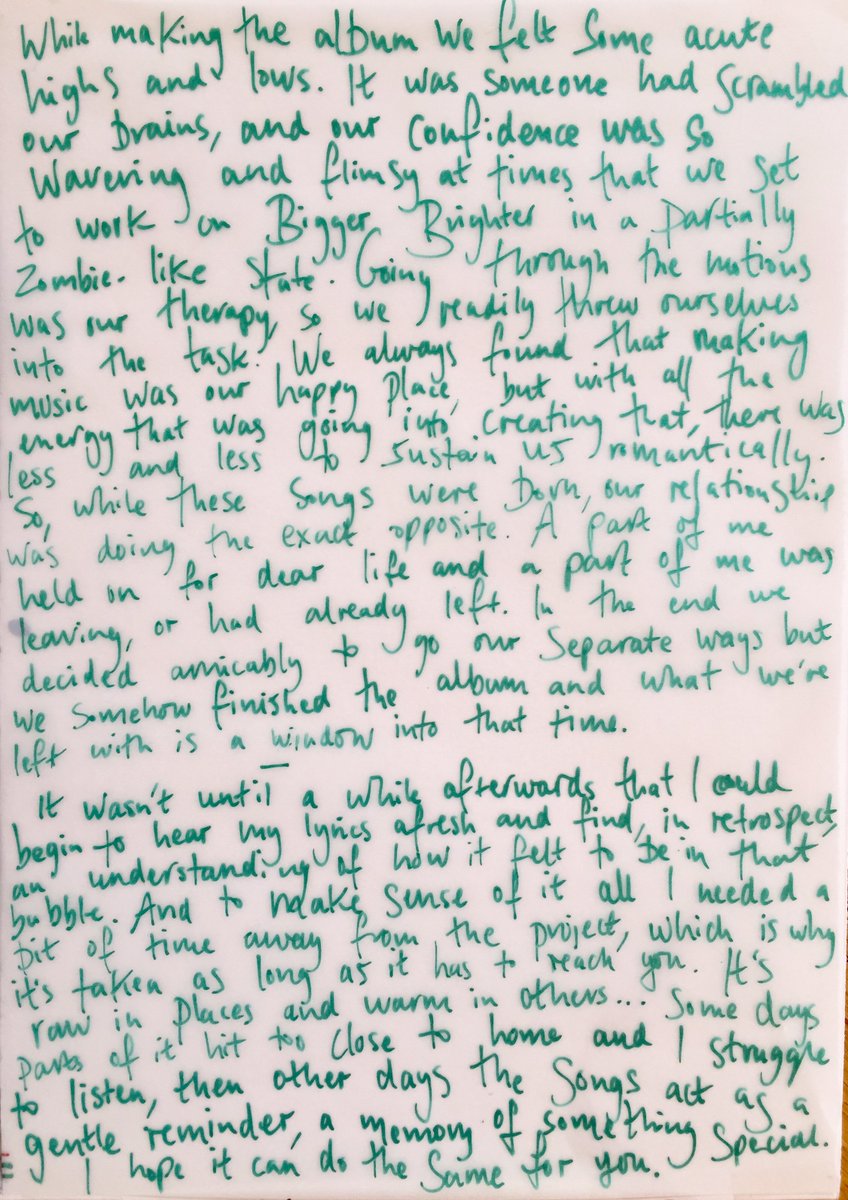 While making the album we felt some acute
highs and lows. It was someone had scrambled
our brains, and our confidence was so
wavering and flimsy at times that we set
to work on Bigger Brighter in a partially
zombie-like state. Going through the motions
was our therapy, so we readily threw ourselves
into the task. We always found that making
music was our happy place, but with all the
energy that was going into creating that, there was
less and less to sustain us romantically.
So, while these songs were born, our relationship
was doing the exact opposite. A part of me
held on for dear life and a part of me was
leaving, or had already left. In the end we
decided amicably to go our separate ways but
we somehow finished the album and what we're
left with is a window into that time.
It wasn't until a while afterwards that I could
begin to hear my lyrics afresh and find, in retrospect,
an understanding of how it felt to be in that
bubble. And to make sense of it all I needed a
bit of time away from the project, which is why
it's taken as long as it has to reach you. It's
raw in places and warm in others... Some days
parts of it hit too close to home and I struggle
to listen, then other days the songs act as a
gentle reminder, a memory of something special.
I hope it can do the same for you.